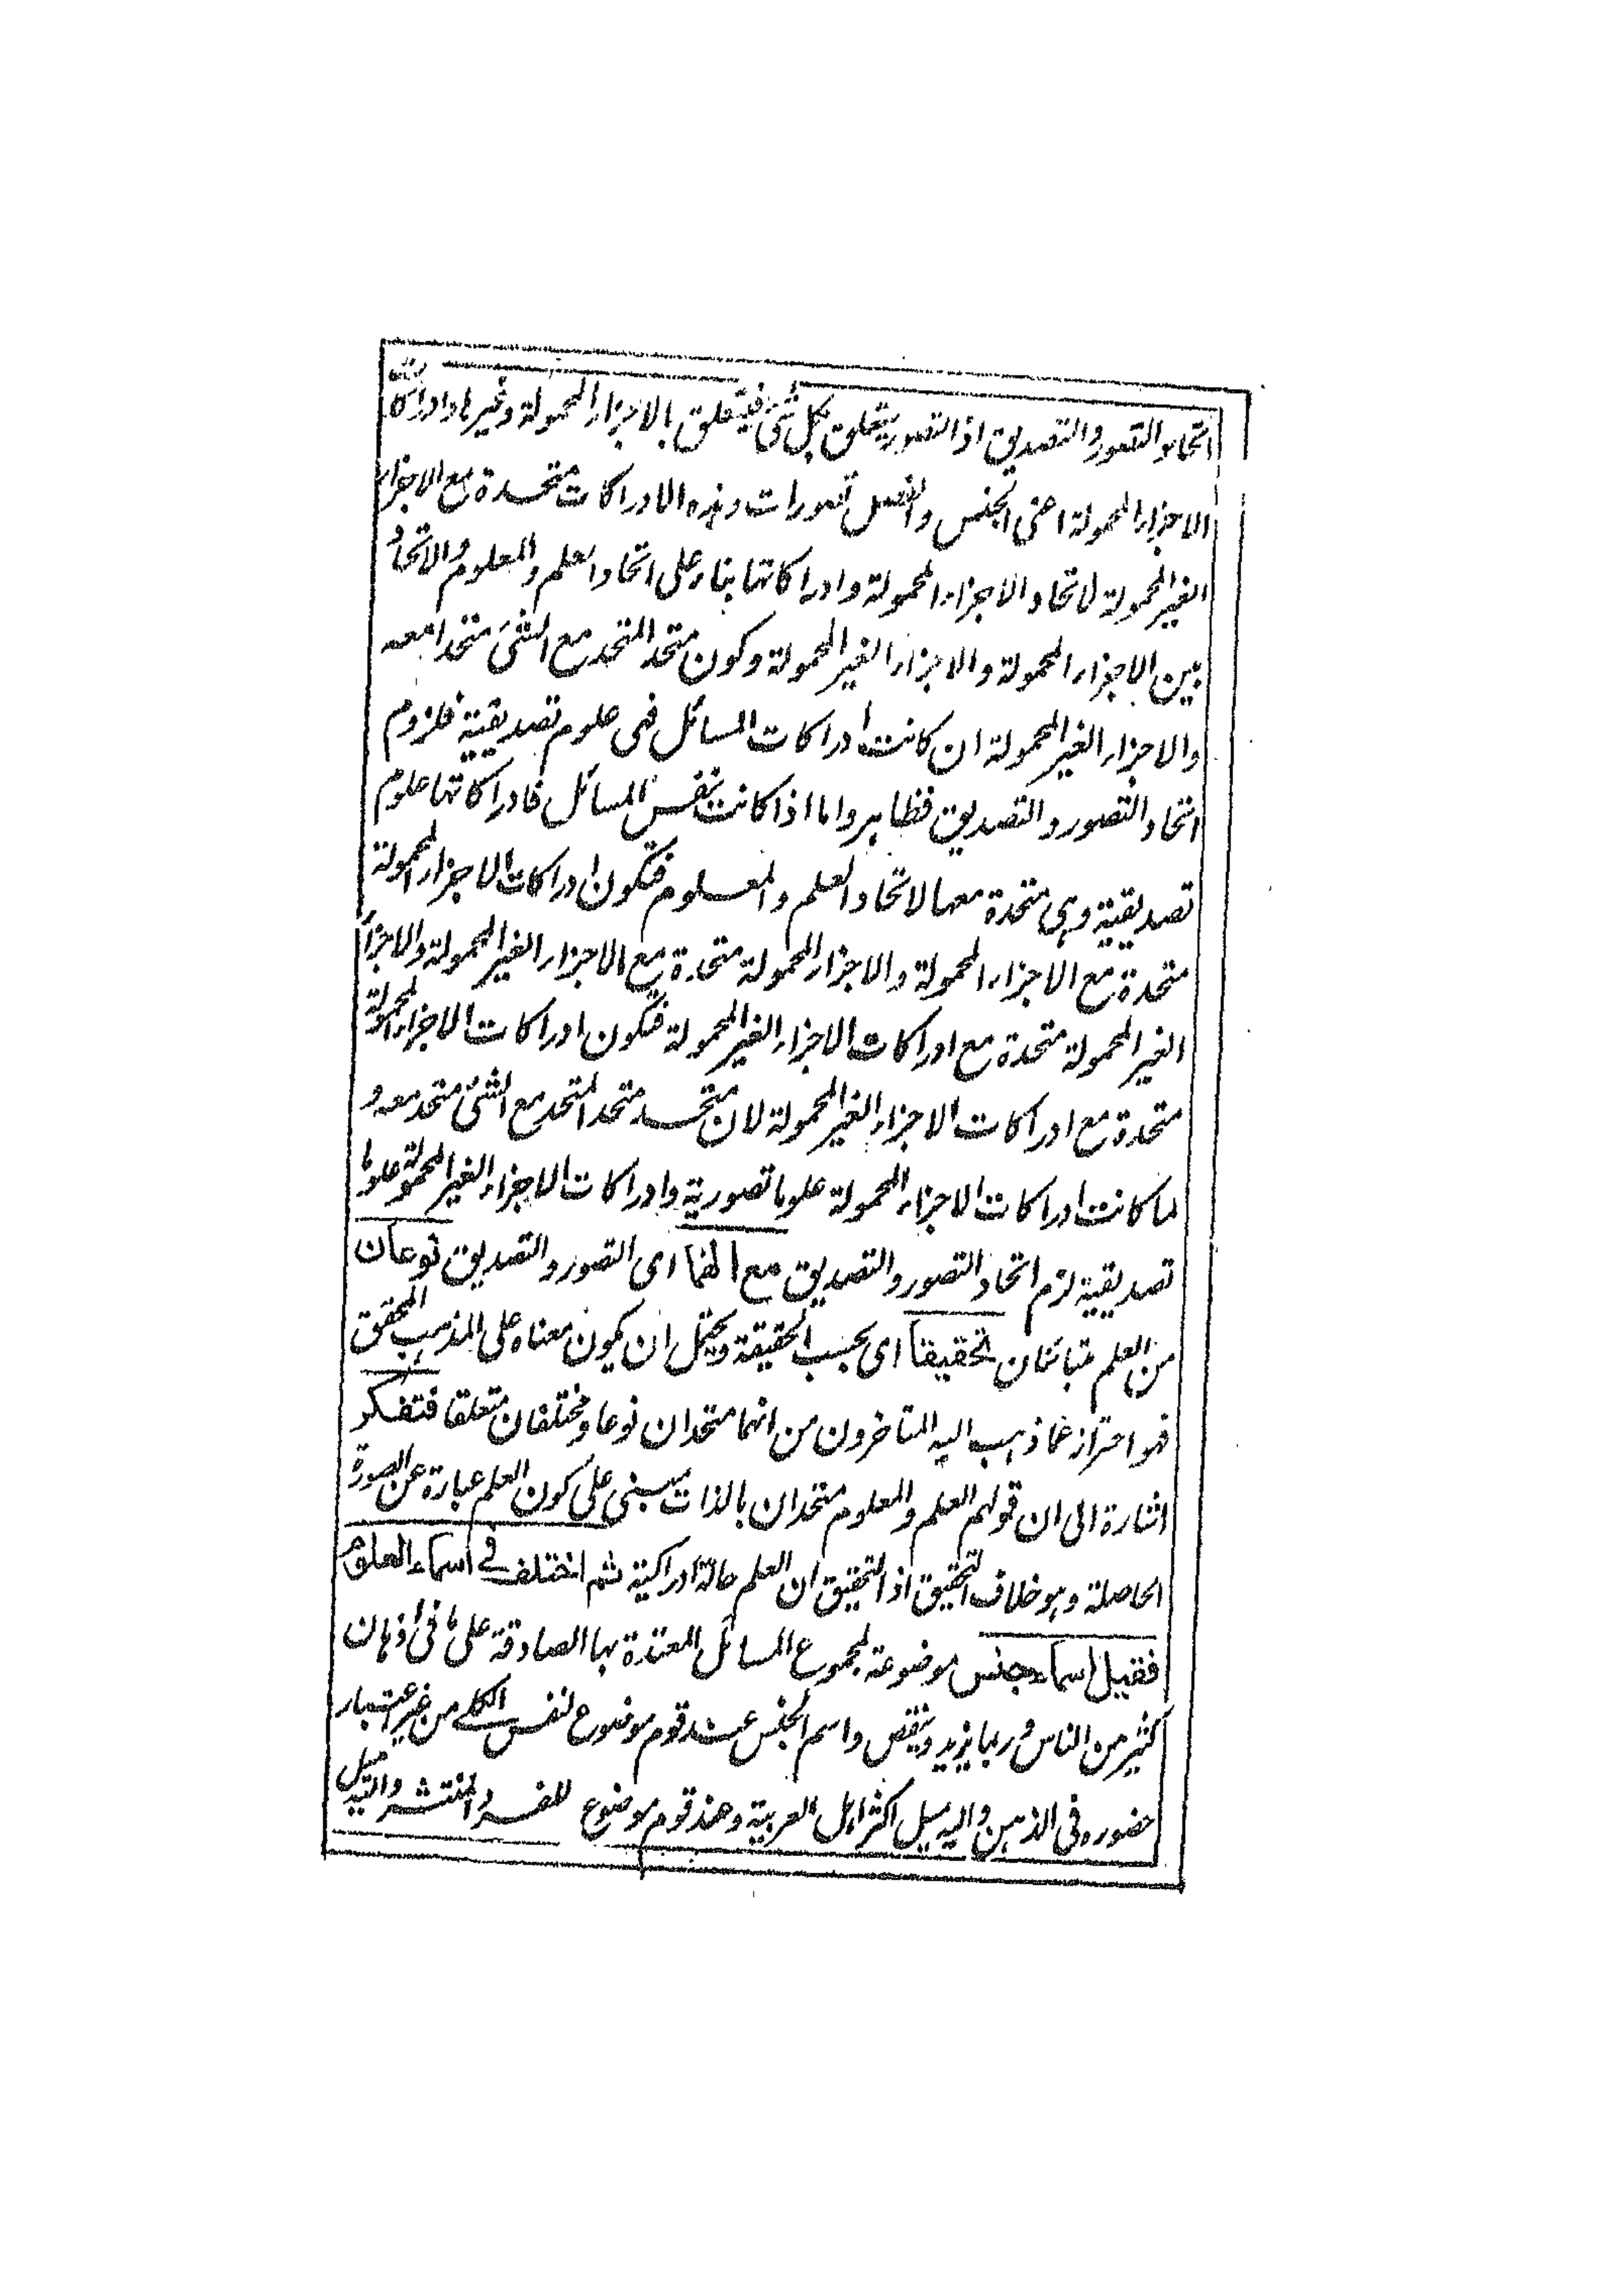 اتحاد التصور والتصديق اذ التصور يتعلق بكل شئ فيتعلق بالاجزاء المحمولة وغيرها وادراكات
الاجزاء المحمولة اعنى الجنس والفصل تصورات وهذه الادراكات متحدة مع الاجزاء
الغير المحمولة لاتحاد الاجزاء المحمولة وادراكاتها بناء على اتحاد العلم والمعلوم والاتحاد
بين الاجزاء المحمولة والاجزاء الغير المحمولة وكون متحد المتحد مع الشئ متحدا معه
والاجزاء الغير المحمولة ان كانت ادراكات المسائل فهى علوم تصديقية فلزوم
اتحاد التصور والتصديق فظاهر واما اذا كانت نفس المسائل فادراكاتها علوم
تصديقية وهى متحدة معها لاتحاد العلم والمعلوم فتكون ادراكات الاجزاء المحمولة
متحدة مع الاجزاء المحمولة والاجزاء المحمولة متحدة مع الاجزاء الغير المحمولة والاجزاء
الغير المحمولة متحدة مع ادراكات الاجزاء الغير المحمولة فتكون ادراكات الاجزاء المحمولة
متحدة مع ادراكات الاجزاء الغير المحمولة لان متحد متحد المتحد مع الشئ متحد معه و
لما كانت ادراكات الاجزاء المحمولة علوما تصورية وادراكات الاجزاء الغير المحمولة علوما
تصديقية لزم اتحاد التصور والتصديق مع انهما اى التصور والتصديق نوعان
من العلم متبائنان تحقيقا اى بحسب الحقيقة ويحتمل ان يكون معناه على المذهب المحقق
فهو احتراز عما ذهب اليه المتاخرون من انهما متحدان نوعا ومختلفان متعلقا فتفكر
اشارة الى ان قولهم العلم والمعلوم متحدان بالذات مبنى على كون العلم عبارة عن الصورة
الحاصلة وهو خلاف التحقيق اذ التحقيق ان العلم حالة ادراكية ثم اختلف فى اسماء العلوم
فقيل اسماء جنس موضوعة لمجموع المسائل المعتدة بها الصادقة على ما فى اذهان
كثير من الناس وربما يزيد وينقص واسم الجنس عند قوم موضوع لنفس الكلى من غير اعتبار
حضوره فى الذهن واليه ميل اكثر اهل العربية وعند قوم موضوع للفرد المنتشر واليه ميل